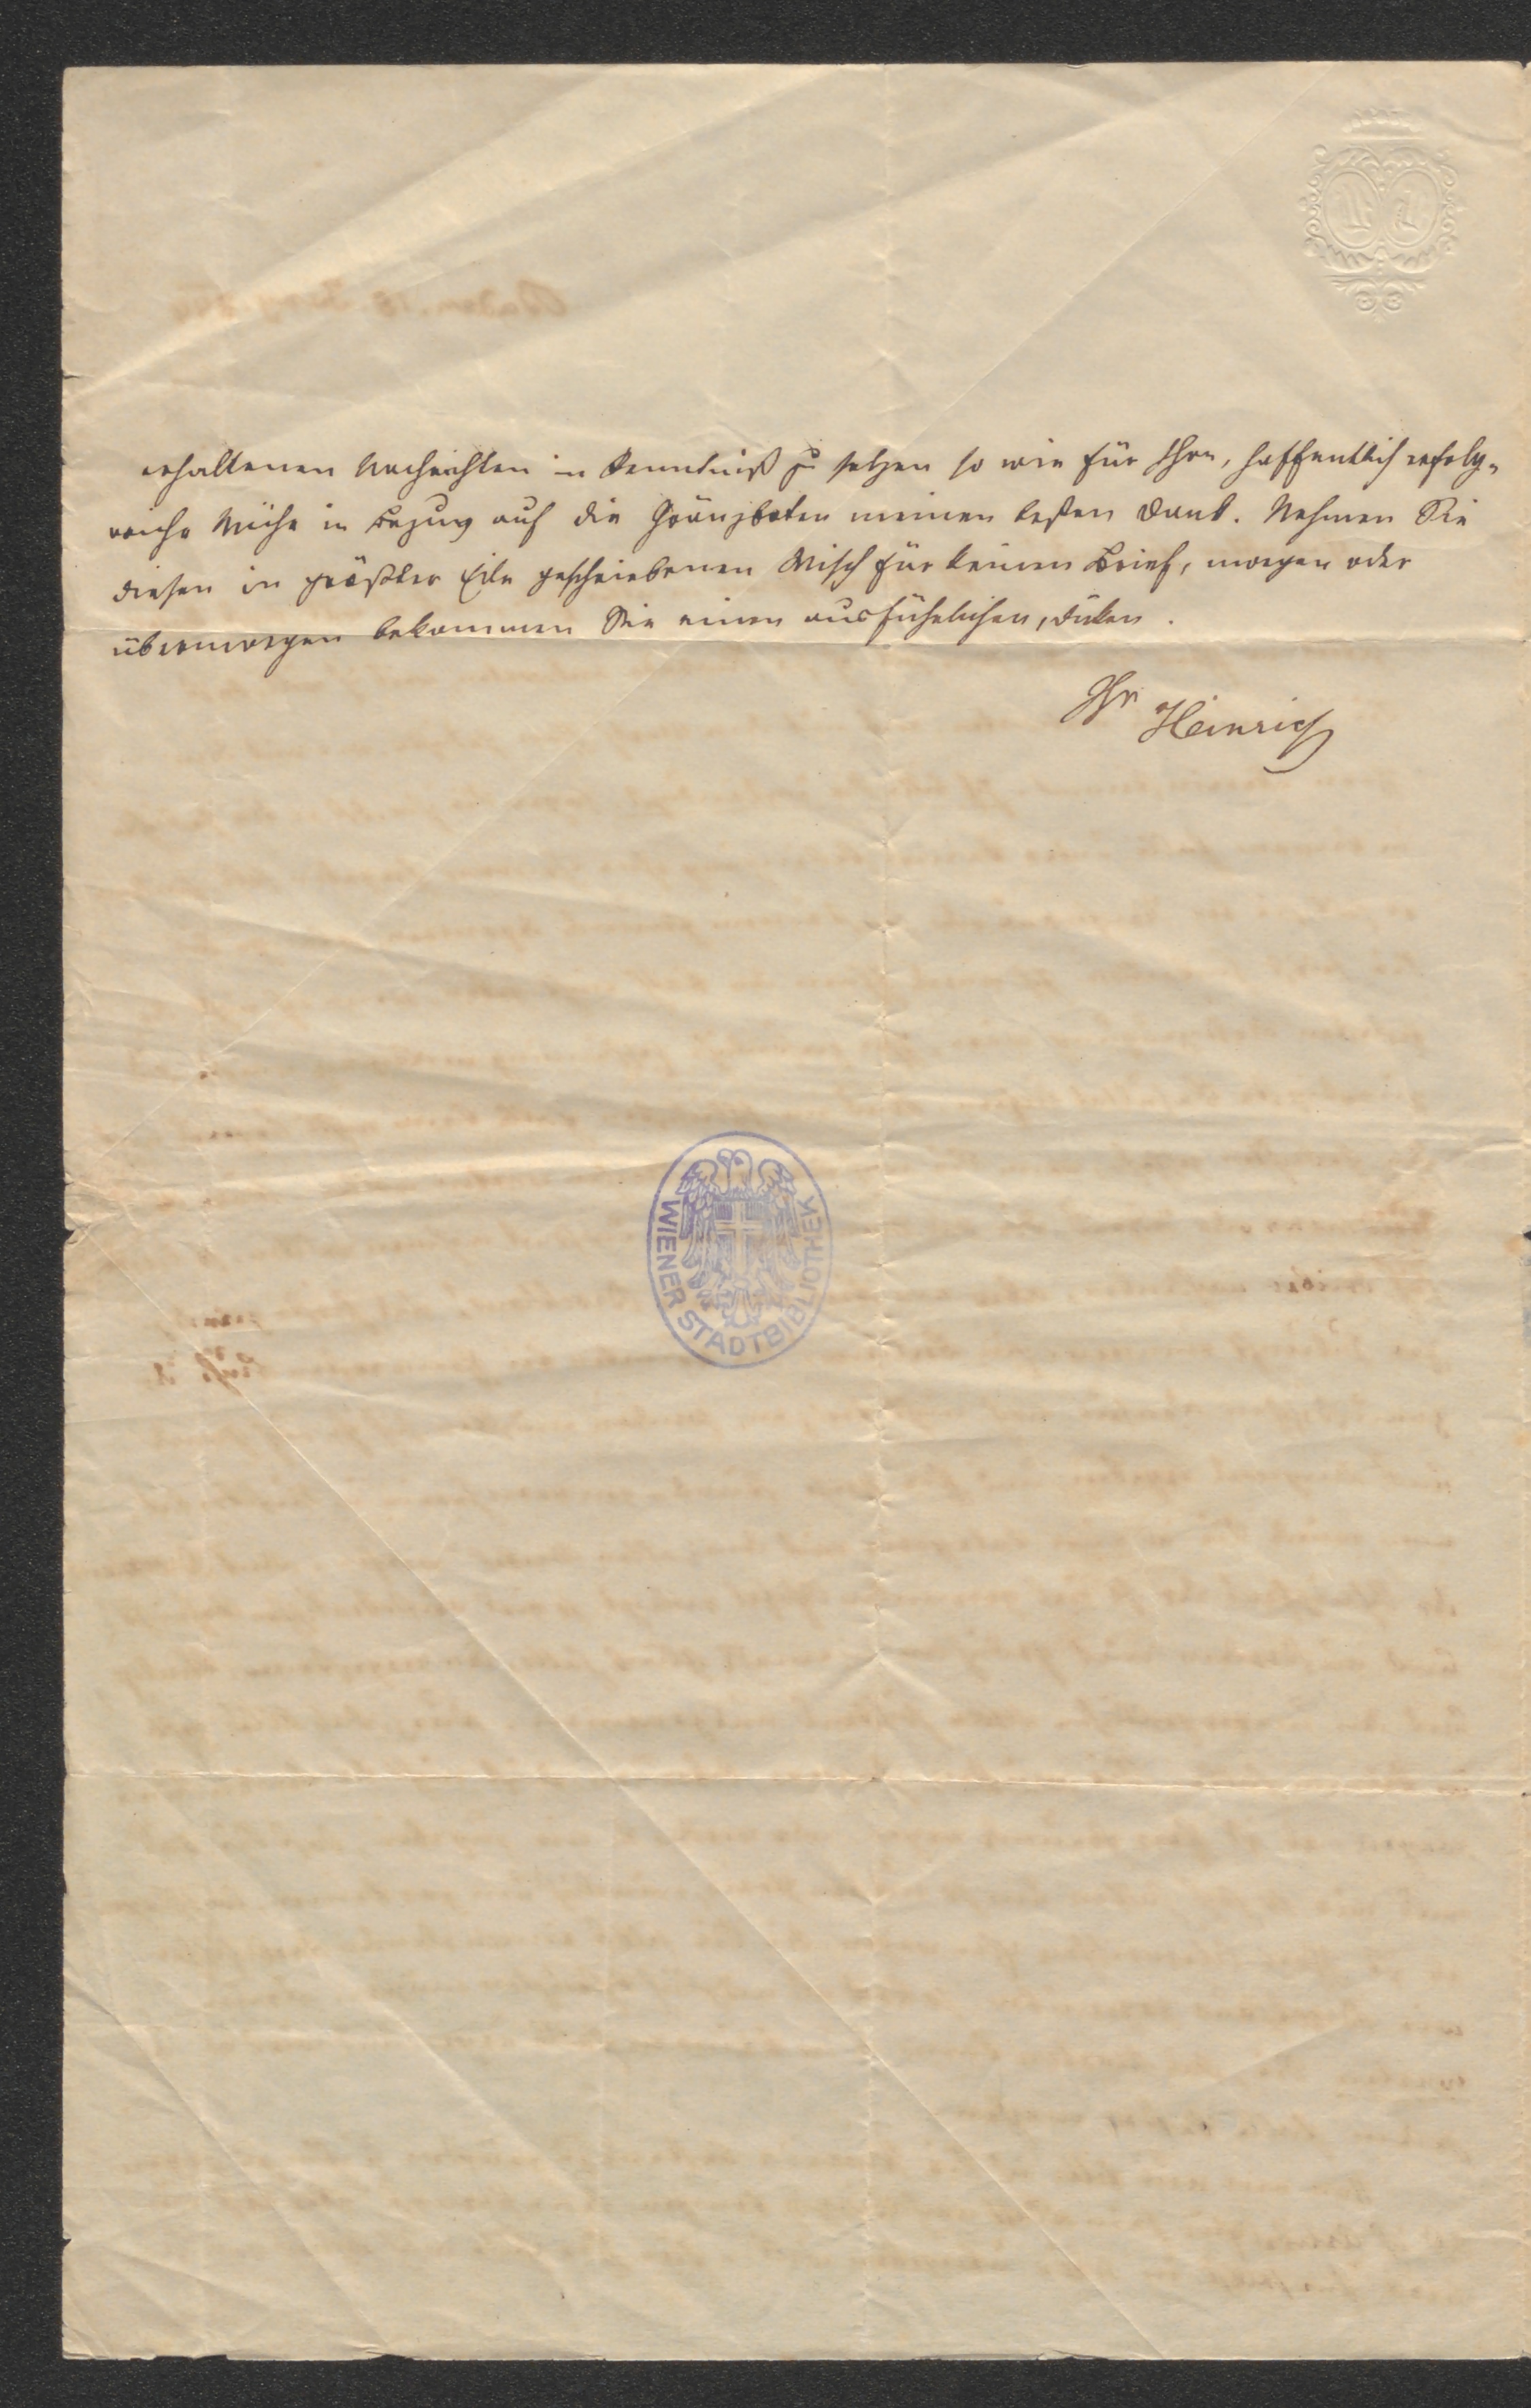 erhaltenen Nachrichten in Kenntniß zu setzen so wie für Ihre, hoffentlich erfolg-
reiche Mühe in Bezug auf die Gränzboten meinen besten Dank. Nehmen Sie
diesen in größter Eile geschriebenen Wisch für keinen Brief, morgen oder
übermorgen bekommen Sie einen ausführlichen, dicken.
Ihr
Heinrich
WIENER STADTBIBLIOTHEK